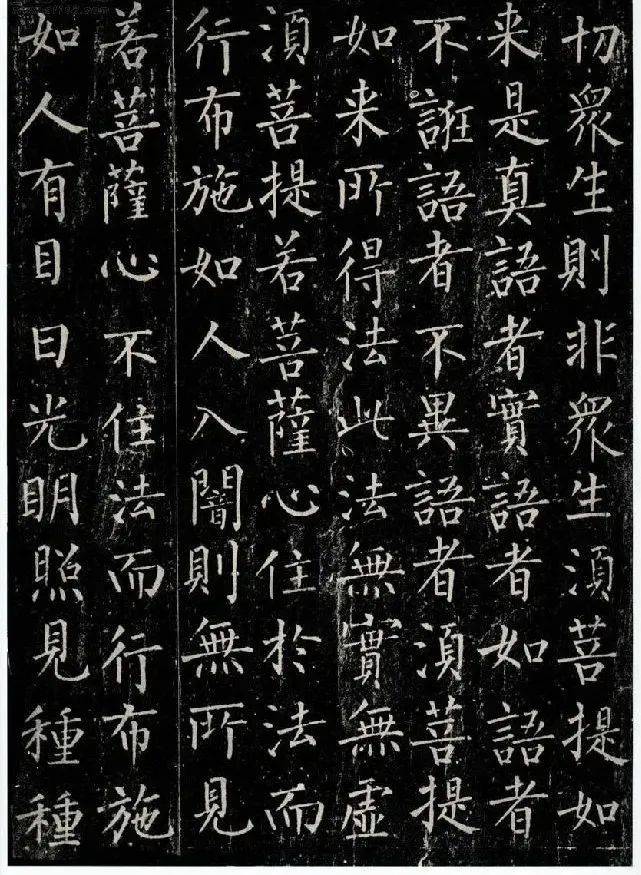 切衆生則非衆生須菩提如
来是真語者實語者如語者
不誑語者不異語者須菩提
如来所得法此法無實無虛
須菩提若菩薩心住於法而
行布施如人入闇則無所見
若菩薩心不住法而行布施
如人有目日光明照見種種